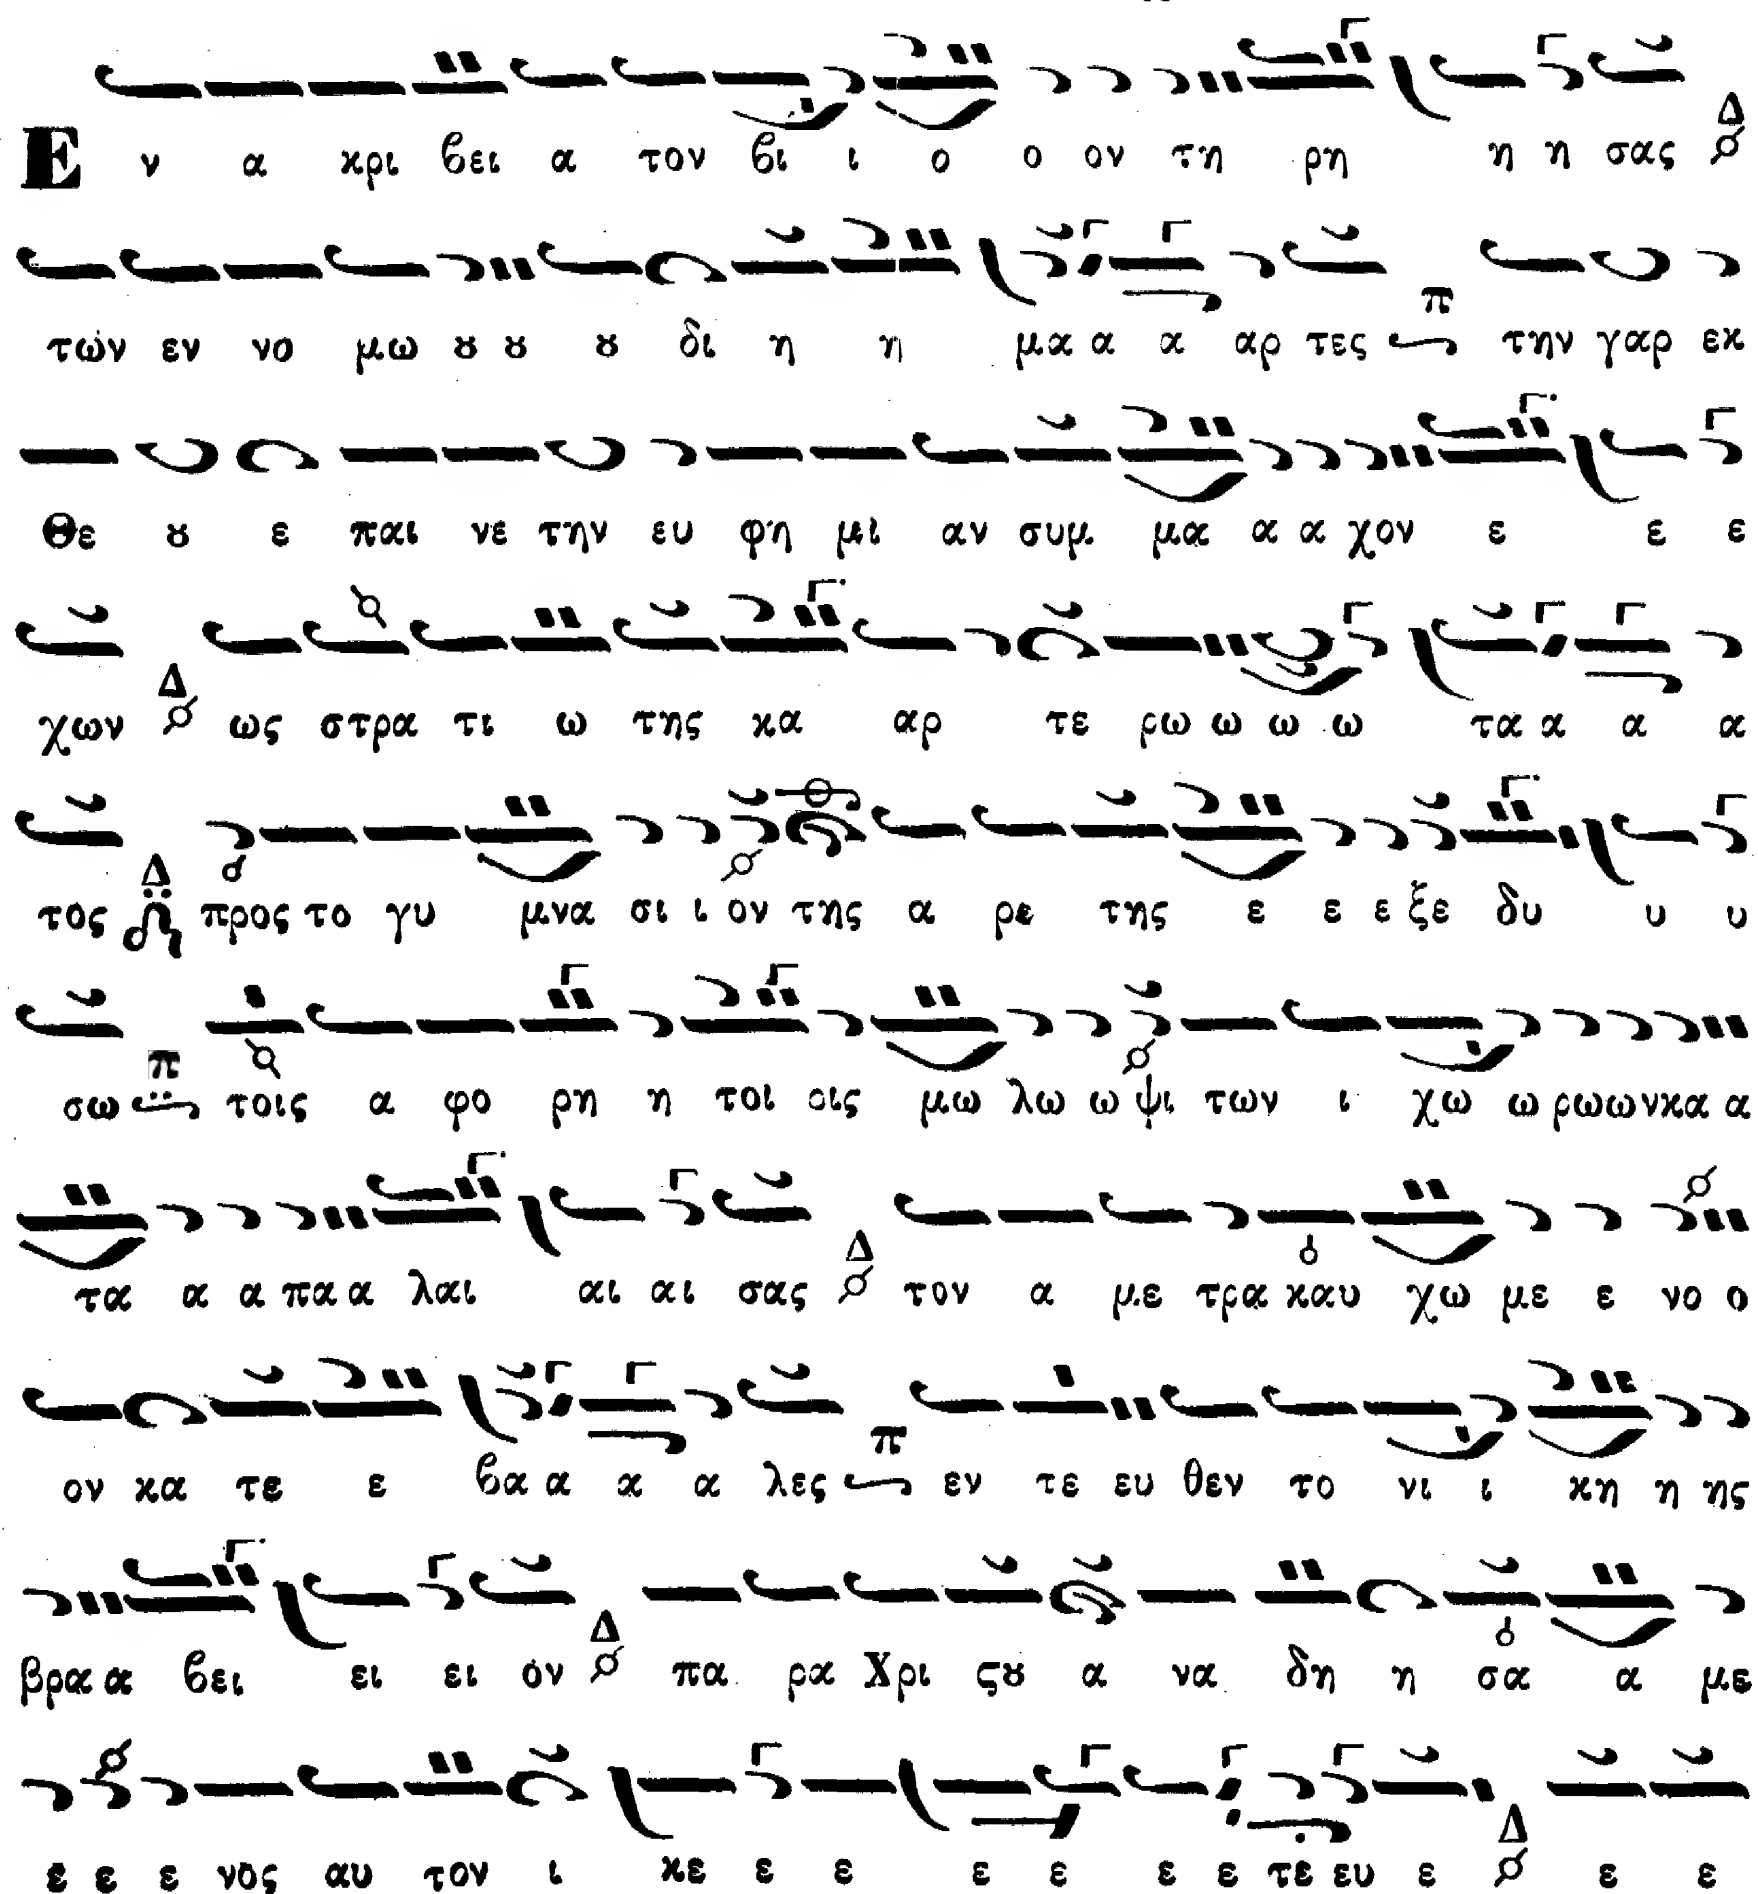 Ε ν α κρι βει α τον βι ι ο ο ον τη ρη η η σας Δ
των εν νο μω ȣ ȣ ȣ δι η η μα α α αρ τες π την γαρ εκ
Θε ȣ ε παι νε την ευ φη μι αν συμ μα α α χον ε ε ε
χων Δ ως στρα τι ω της κα αρ τε ρω ω ω ω τα α α α
τος Δ προς το γυ μνα σι ι ον της α ρε της ε ε ε ξε δυ υ υ
σω π τοις α φο ρη η τοι οις μω λω ω ψι των ι χω ω ρω ων κα α
τα α α πα α λαι αι αι σας Δ τον α με τρα καυ χω με ε νο ο
ον κα τε ε βα α α α λες π εν τε ευ θεν το νι ι κη η ης
βρα α βει ει ει ον Δ πα ρα Χρι ϛȣ α να δη η σα α με
ε ε ε νος αυ τον ι κε ε ε ε ε ε ε τε ευ ε Δ ε ε